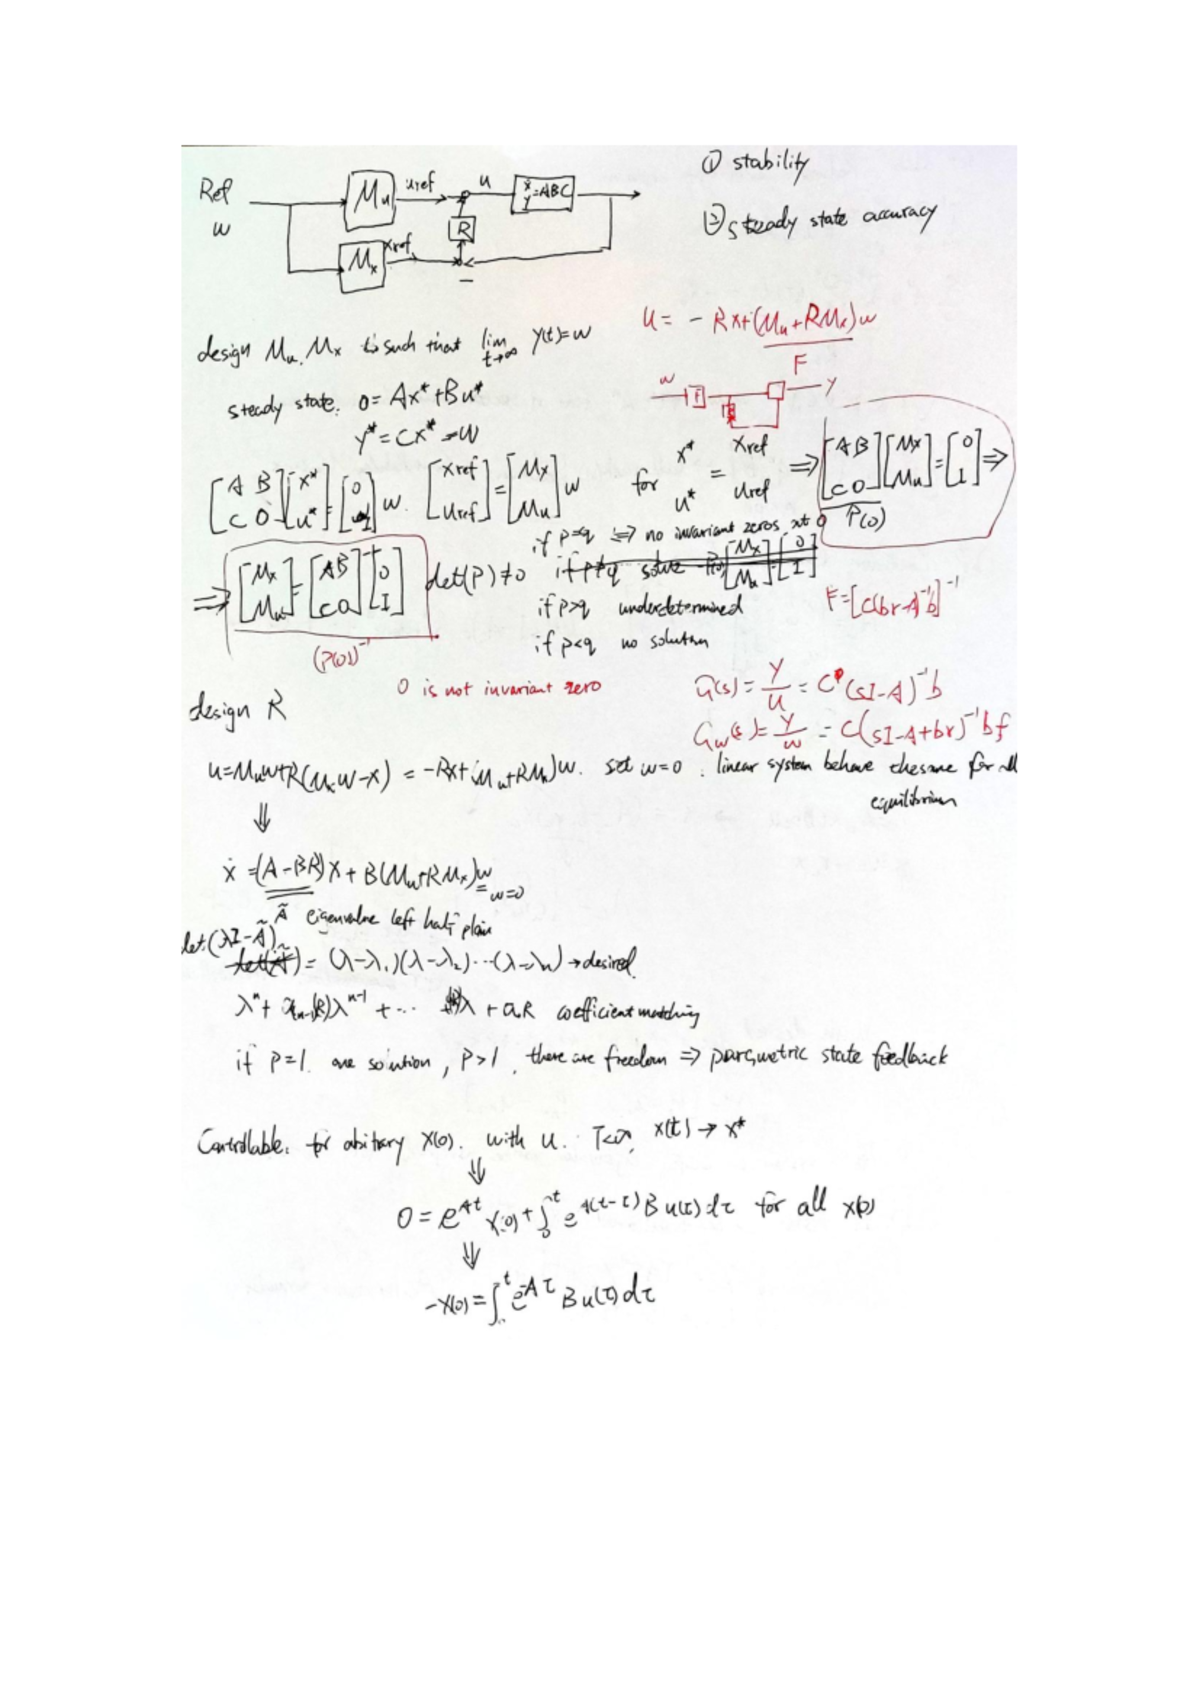 ① stability
Ref w Mu uref u ẋ y =ABC
② steady state accuracy
R
Mx xref
−
u = − Rx+(Mu+RMx)w
F
design Mu, Mx is such that lim t→∞ y(t)=w
w F R y
steady state: 0 = Ax* + Bu*
y* = Cx* = w
[A B C 0][x* u*] = [0 I] w. [xref uref] = [Mx Mu] w for x* u* = xref uref ⇒ [A B C 0][Mx Mu] = [0 I] ⇒
P(0)
if p=q ⇒ no invariant zeros at 0
⇒ [Mx Mu] = [A B C 0]⁻¹ [0 I] det(P) ≠ 0 if p≠q solve P(0) [Mx Mu] = [0 I]
if p>q underdetermined
F = [C(br-A)⁻¹b]⁻¹
if p<q no solution
(P(0))⁻¹
0 is not invariant zero
G(s) = Y/U = C (sI-A)⁻¹b
design R
Gw(s) = Y/w = C(sI-A+br)⁻¹bf
u=Muw+R(Mxw-x) = -Rx+(Mu+RMx)w. set w=0. linear system behave the same for all
equilibrium
⇓
ẋ = (A-BR)x + B(Mu+RMx)w w=0
Ã eigenvalue left half plain
det(λI-Ã)
det(Ã) = (λ-λ₁)(λ-λ₂)...(λ-λn) → desired.
λⁿ + an-1(R)λⁿ⁻¹ + ... λ + a₀R coefficient matching
if p=1. one solution, p>1, there are freedom ⇒ parametric state feedback
Controllable: for abitrary x(0). with u. T<∞, x(t) → x*
⇓
0 = e^At x(0) + ∫₀^t e^A(t-τ) B u(τ) dτ for all x(0)
⇓
-x(0) = ∫₀^t e^-Aτ B u(τ) dτ